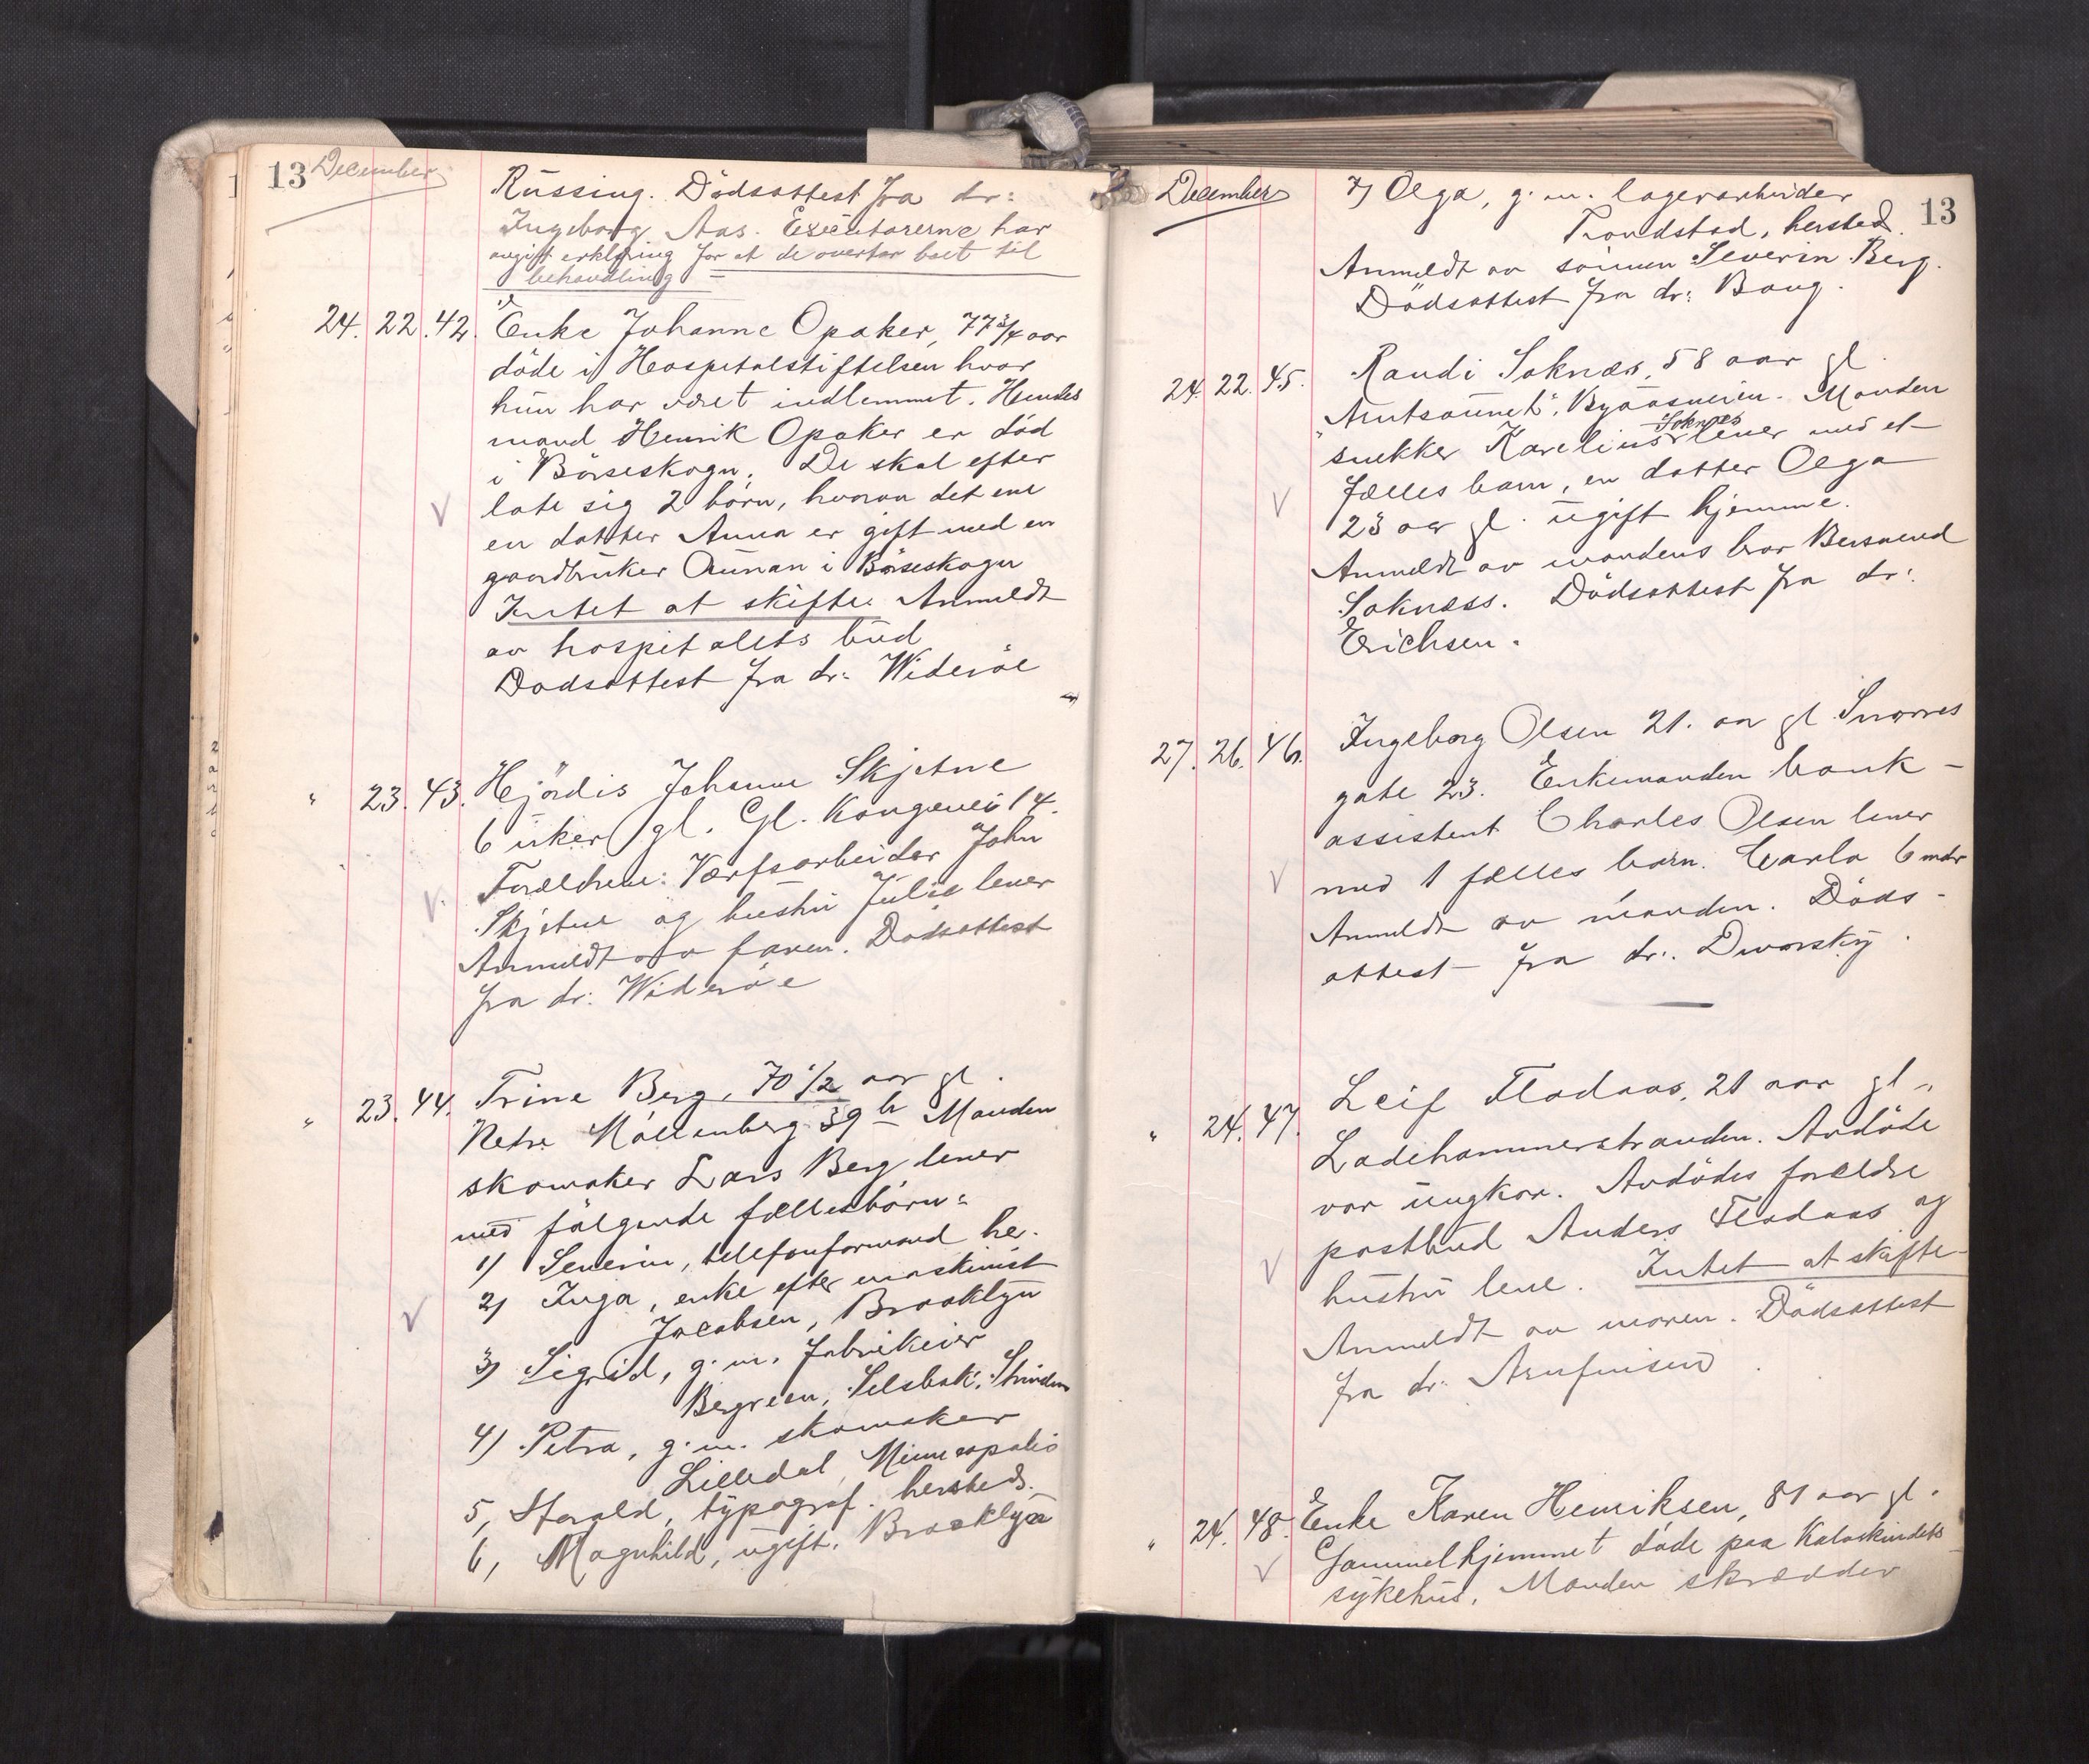 13 December
Rüssing. Dödsattest fra dr:
Ingeborg Aas. Exécutorerne har
avgitt erklæring for at de overtar boet til
behandling =
24. 22. 42. Enke Johanne Opaker, 77 3/4 aar
döde i Hospitalstiftelsen hvor
hün har været indlemmet. Hendes
mand Henrik Opaker er död
i Börseskogn. De skal efter
late sig 2 börn, hvorav det ene
en datter Anna er gift med en
gaardbrüker Aünan i Börseskogn
Intet at skifte. Anmeldt
av hospitalets büd
Dödsattest fra dr: Wideröe
" 23. 43. Hjördis Johanne Skjetne
6 üker gl. Gl. Kongevei 14.
Forældrene: Værfsarbeider John
Skjetne og hüstrü Jülie lever
Anmeldt av faren. Dödsattest
fra dr: Wideröe
" 23. 44. Trine Berg, 70 1/2 aar gl.
Nedre Möllenberg 39 b Manden
skomaker Lars Berg lever
med fölgende fællesbörn:
1) Severin, telefonformand he.
2) Inga, enke efter maskinist
Jacobsen, Brooklyn
3) Sigrid, g. m. fabrikeier
Bergreen, Selsbak, Strinden
4) Petra, g. m. skomaker
Lilledal, Minneapolis
5, Harald, typograf. hersteds.
6, Magnhild, ügift. Brooklyn
December
13
7) Olga, g. m. lagerarbeider
Trondstad, hersted.
Anmeldt av sönnen Severin Berg.
Dödsattest fra dr: Baug.
24. 22. 45. Randi Soknæs, 58 aar gl.
"Arntsaünet", Byaasveien. Manden
Soknæs
snekker Karelius lever med et
fælles barn, en datter Olga
23 aar gl. ügift hjemme.
Anmeldt av mandens bror Bersvend
Soknæss. Dödsattest fra dr:
Erichsen.
27. 26. 46. Ingeborg Olsen 21. aar gl Snorres
gate 23. Enkemanden bank-
assistent Charles Olsen lever
med 1 fælles barn. Carla 6 mdr
Anmeldt av manden. Döds-
attest fra dr: Dworsky.
" 24. 47. Leif Flodaas, 21 aar gl.,
Ladehammerstranden. Avdöde
var üngkar. Avdödes forældre
postbüd Anders Flodaas og
hüstrü leve. Intet at skifte-
Anmeldt av moren. Dödsattest
fra dr: Arnfinsen.
" 24. 48. Enke Karen Henriksen, 81 aar gl.
Gammelhjemmet döde paa Kalvskindets
sykehüs. Manden skrædder